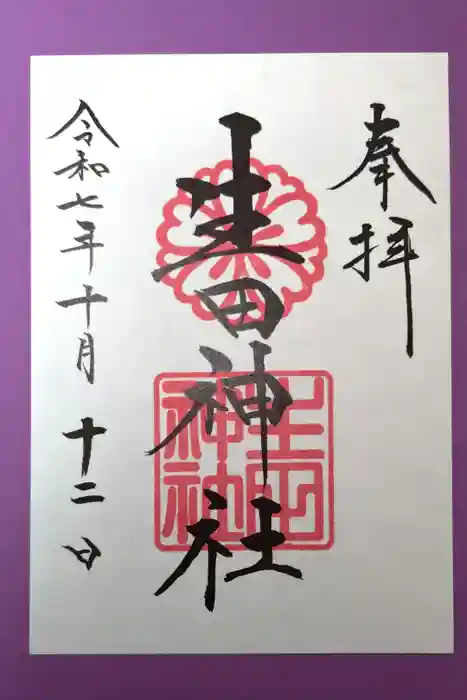 奉拝
生田神社
生田神社
令和七年十月十二日